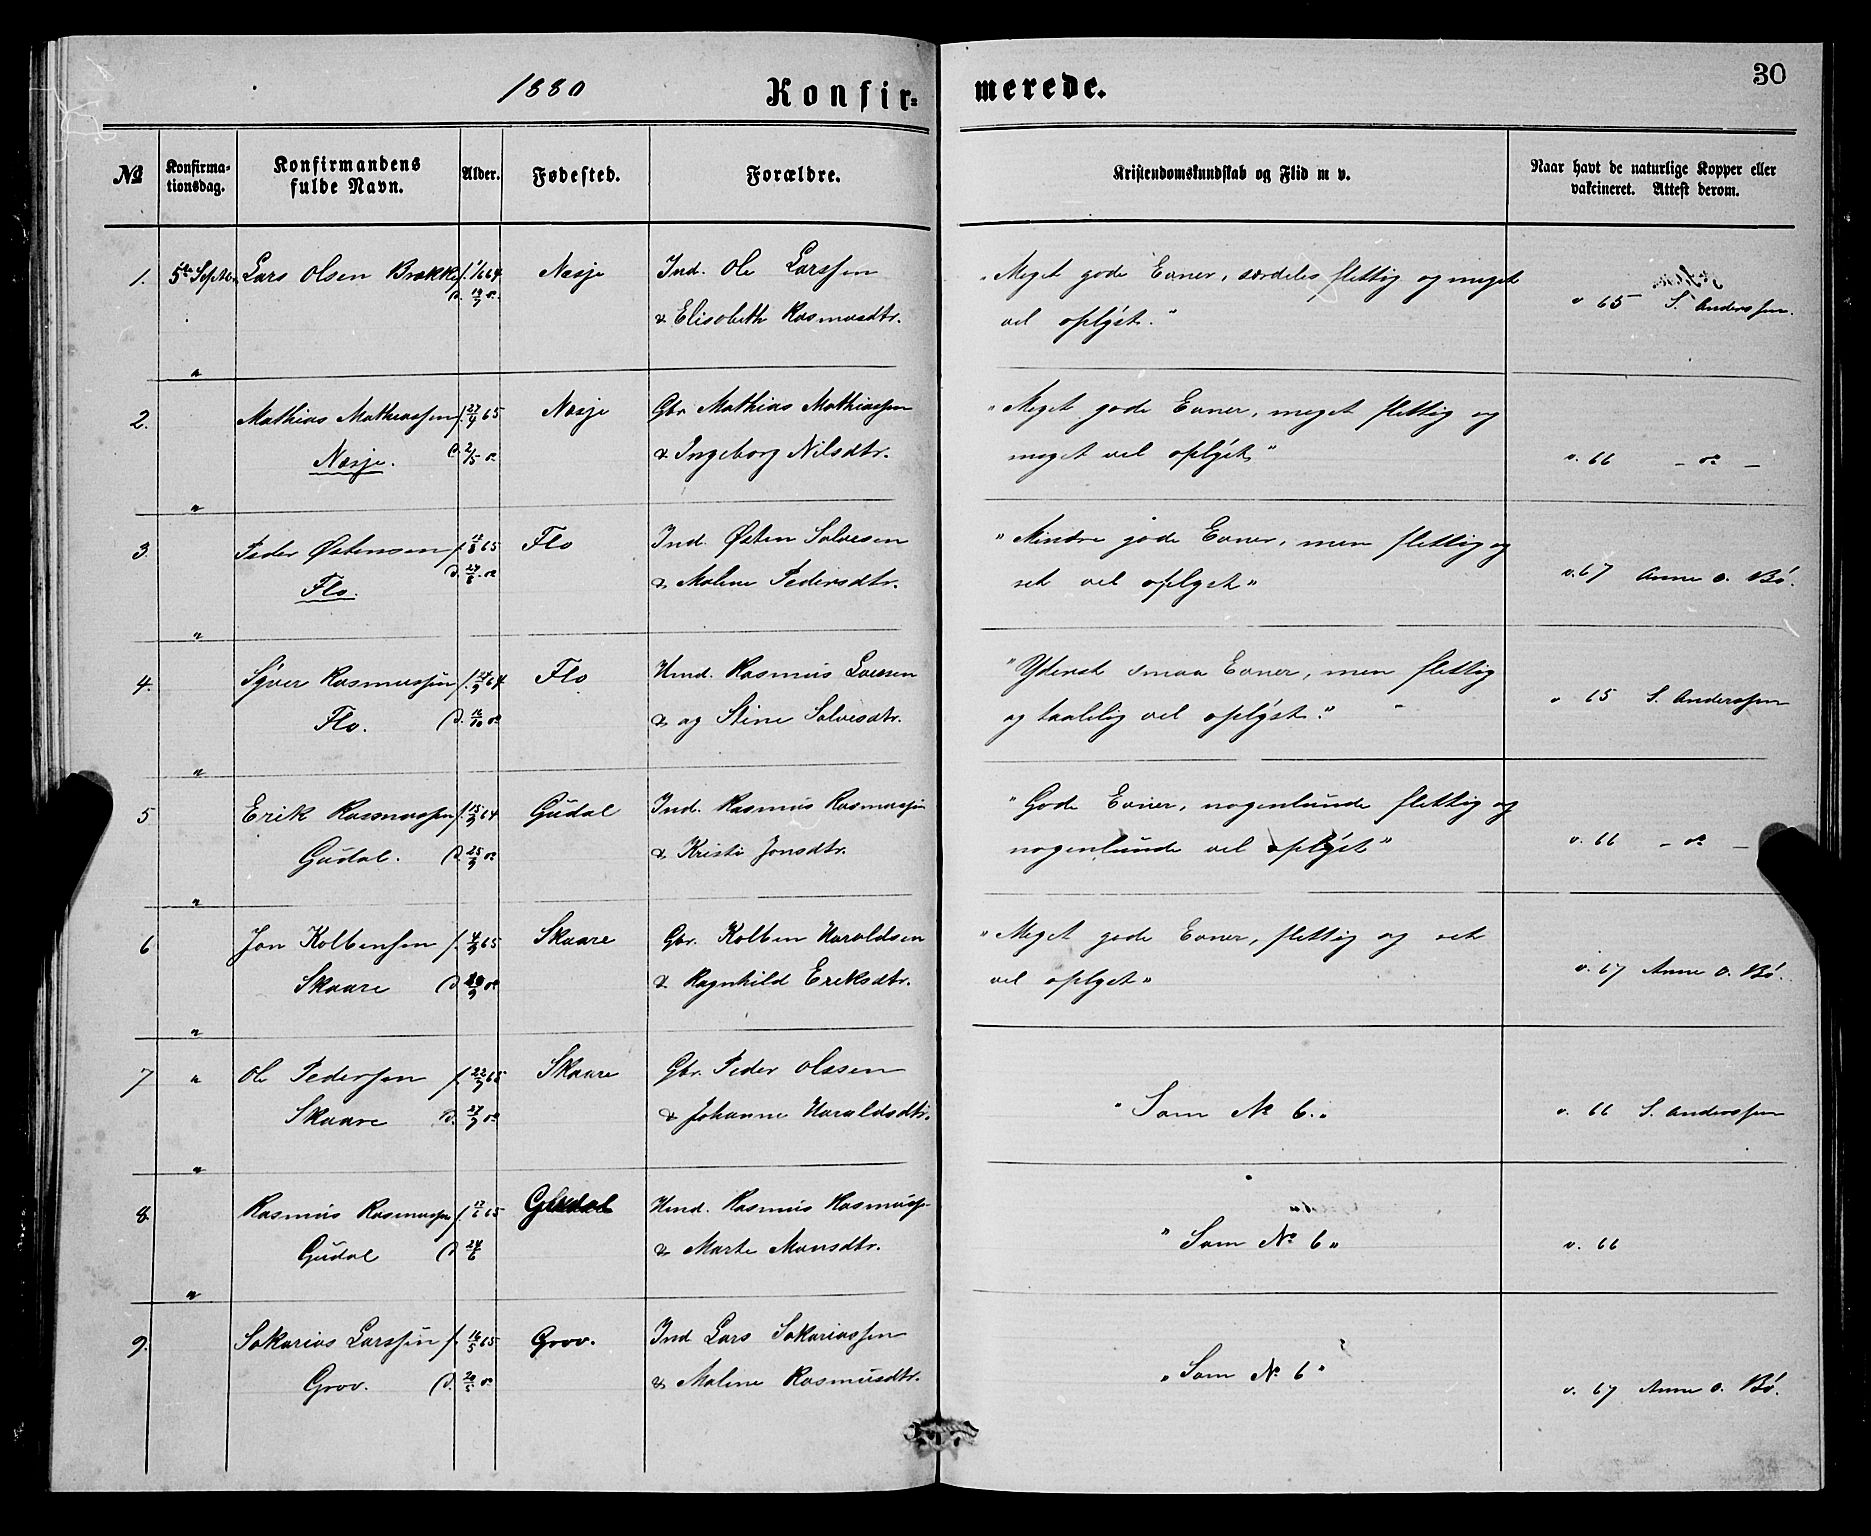 1880 Konfirmerede. 30
№ Konfirmationsdag. Konfirmandens fulde Navn. Alder. Fødested. Forældre. Kristendomskundskab og Flid m v. Naar havt de naturlige Kopper eller vakcineret. Attest derom.
1. 5te Septbr. Lars Olsen Brække f. 1/6 64 Nesje Ind. Ole Larssen "Meget gode Evner, særdeles flittig og meget
d. 19/7 do. & Elisabeth Rasmusdtr. vel oplyst." v 65 S. Anderssen.
"
2. Mathias Mathiassen f. 27/4 65 Nesje Gbr. Mathias Mathiassen "Meget gode Evner, meget flittig og
Nesje. d. 2/5 do & Ingeborg Nilsdtr. meget vel oplyst" v. 66 – do –
"
3. Peder Østensen f. 12/6 65 Flo Ind. Østen Solvesen "Mindre gode Evner, men flittig og
Flo. d. 27/6 do & Malene Pedersdtr. ret vel oplyst" v. 67 Anne O. Bø.
"
4. Syver Rasmussen f. 24/9 64 Flo Hmd. Rasmus Larsen "Yderst smaa Evner, men flittig
Flo. d. 16/10 do & og Stine Solvesdtr. og taalelig vel oplyst." v 65 S. Anderssen
"
5 Erik Rasmussen f. 15/9 64 Gudal Ind. Rasmus Rasmussen "Gode Evner, nogenlunde flittig og
Gudal. d. 25/9 do & Kristi Jonsdtr. nogenlunde vel oplyst" v. 66 – do –
"
6 Jon Kolbensen f. 4/9 65 Skaare Gbr. Kolben Haraldsen "Meget gode Evner, flittig og ret
Skaare d. 20/9 do & Ragnhild Eriksdtr. vel oplyst" v. 67 Anne O. Bø.
"
7 " Ole Pedersen f. 22/7 65 Skaare Gbr. Peder Olssen
Skaare d. 27/7 do & Johanne Haraldsdtr. "Som № 6." v. 66 S. Anderssen
"
8 Rasmus Rasmussen f. 12/6 65 Gudal Hmd. Rasmus Rasmuss.
Gudal d. 24/6 & Marte Monsdtr. "Som № 6" v. 66
"
9. Sakarias Larssen f. 16/5 65 Grov. Ind Lars Sakariassen
Grov. d. 20/5 do & Malene Rasmusdtr. "Som № 6" v. 67 Anne O. Bø.